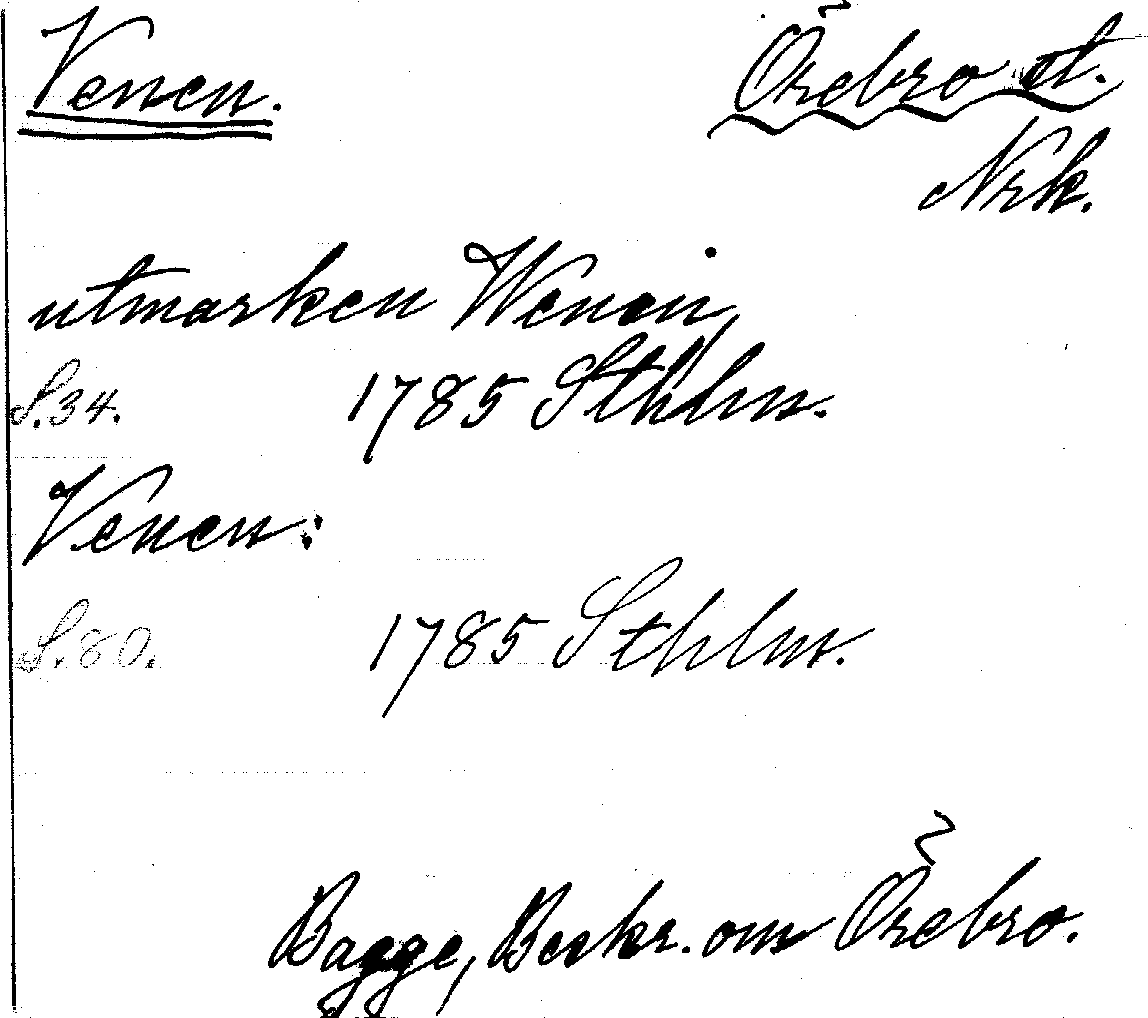 Venen.
Örebro st.
Nrk.
utmarken Wenen,
S. 34. 1785 Sthlm.
Venen:
S. 80. 1785 Sthlm.
Bagge, Beskr. om Örebro.